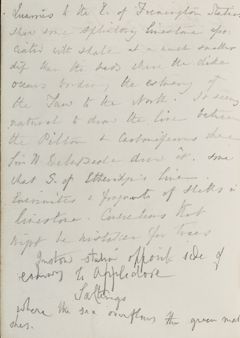 Quarries to the E. of Fremington Station
show some splintery limestone asso-
ciated with shale at a much smaller
dip than the beds where the dike
occurs bordering the estuary of
the Taw to the North. It seems
natural to draw the line between
the Pilton & Carboniferous where
draw it. some
what S. of Etheridge's line.
Encrinites & fragments of shells in
limestone.
might be mistaken for trees
Instow station opposite side of
estuary to Appledore
Saltings
where the sea overflows the green mar
shes.